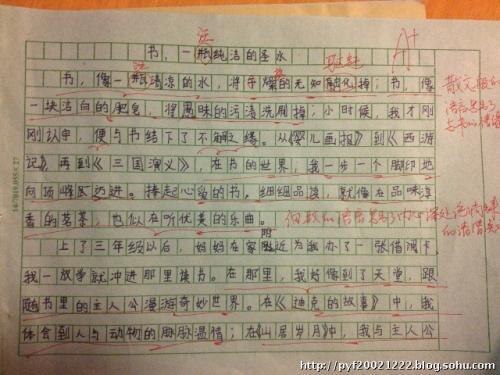 书，一瓶纯洁的圣水
书，像一瓶清凉的水，将干燥的无知融化掉；书，像
一块洁白的肥皂，将愚昧的污渍洗刷掉；小时候，我才刚
刚认字，便与书结下了不解之缘。从《婴儿画报》到《西游
记》，再到《三国演义》，在书的世界，我一步一个脚印地
向顶峰迈进。捧起心爱的书，细细品读，就像在品味淳
香的茗茶，也似在听优美的乐曲。
上了三年级以后，妈妈在家附近为我办了一张借阅卡
我一放学就冲进那里读书。在那里，我好像到了天堂，跟
随书里的主人公漫游奇妙世界。在《迪克的故事》中，我
体会到人与动物的脉脉温情；在《山居岁月》中，我与主人公
A+
散文般的
http://pyf20021222.blog.sohu.com